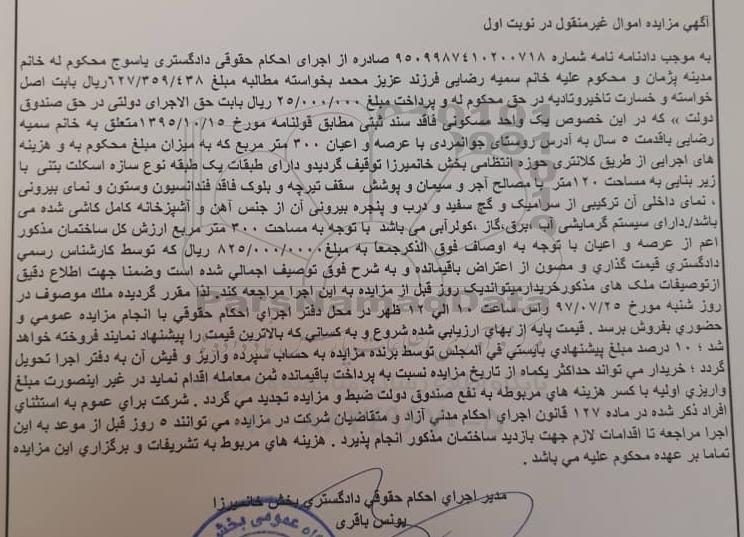 آگهي مزايده اموال غيرمنقول در نوبت اول
به موجب دادنامه نامه شماره ۹۵۰۹۹۸۷۴۱۰۲۰۰۷۱۸ صادره از اجرای احکام حقوقی دادگستری یاسوج محکوم له خانم
مدینه پژمان و محکوم علیه خانم سمیه رضایی فرزند عزیز محمد بخواسته مطالبه مبلغ ۶۲۷/۳۵۹/۴۳۸ریال بابت اصل
خواسته و خسارت تاخیروتادیه در حق محکوم له و پرداخت مبلغ ۲۵/۰۰۰/۰۰۰ ریال بابت حق الاجرای دولتی در حق صندوق
دولت » که در این خصوص یک واحد مسکونی فاقد سند ثبتی مطابق قولنامه مورخ ۱۳۹۵/۱۰/۱۵متعلق به خانم سمیه
رضایی باقدمت ۵ سال به آدرس روستای جوانمردی با عرصه و اعیان ۳۰۰ متر مربع که به میزان مبلغ محکوم به و هزینه
های اجرایی از طریق کلانتری حوزه انتظامی بخش خانمیرزا توقیف گردیدو دارای طبقات یک طبقه نوع سازه اسکلت بتنی با
زیر بنایی به مساحت ۱۲۰متر با مصالح آجر و سیمان و پوشش سقف تیرچه و بلوک فاقد فندانسیون وستون و نمای بیرونی
، نمای داخلی آن ترکیبی از سرامیک و گچ سفید و درب و پنجره بیرونی آن از جنس آهن و آشپزخانه کامل کاشی شده می
باشد/.دارای سیستم گرمایشی آب ،برق،گاز ،کولرآبی می باشد با توجه به مساحت ۳۰۰ متر مربع ارزش کل ساختمان مذکور
اعم از عرصه و اعیان با توجه به اوصاف فوق الذکرجمعا به مبلغ۸۲۵/۰۰۰/۰۰۰۰ ریال که توسط کارشناس رسمي
دادگستري قيمت گذاري و مصون از اعتراض باقيمانده و به شرح فوق توصيف اجمالي شده است وضمنا جهت اطلاع دقيق
ازتوصیفات ملک های مذکورخریدارمیتواندیک روز قبل از مزایده به این اجرا مراجعه کند. لذا مقرر گرديده ملك موصوف در
روز شنبه مورخ ۹۷/۰۷/۲۵ راس ساعت ۱۰ الي ۱۲ ظهر در محل دفتر اجراي احكام حقوقي با انجام مزايده عمومي و
حضوري بفروش برسد . قيمت پايه از بهاي ارزيابي شده شروع و به كساني كه بالاترين قيمت را پيشنهاد نمايند فروخته خواهد
شد ؛ ۱۰ درصد مبلغ پيشنهادي بايستي في المجلس توسط برنده مزايده به حساب سپرده واريز و فيش آن به دفتر اجرا تحويل
گردد ؛ خريدار مي تواند حداكثر يكماه از تاريخ مزايده نسبت به پرداخت باقيمانده ثمن معامله اقدام نمايد در غير اينصورت مبلغ
واريزي اوليه با كسر هزينه هاي مربوطه به نفع صندوق دولت ضبط و مزايده تجديد مي گردد . شركت براي عموم به استثناي
افراد ذكر شده در ماده ۱۲۷ قانون اجراي احكام مدني آزاد و متقاضيان شركت در مزايده مي توانند ۵ روز قبل از موعد به اين
اجرا مراجعه تا اقدامات لازم جهت بازديد ساختمان مذكور انجام پذيرد . هزينه هاي مربوط به تشريفات و برگزاري اين مزايده
تماما بر عهده محكوم عليه مي باشد .
مدیر اجراي احکام حقوقي دادگستري بخش خانمیرزا
یونس باقری
ParsNamadData